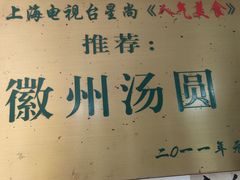 上海电视台星尚《人气美食》
推荐：
徽州汤圆
二〇一一年